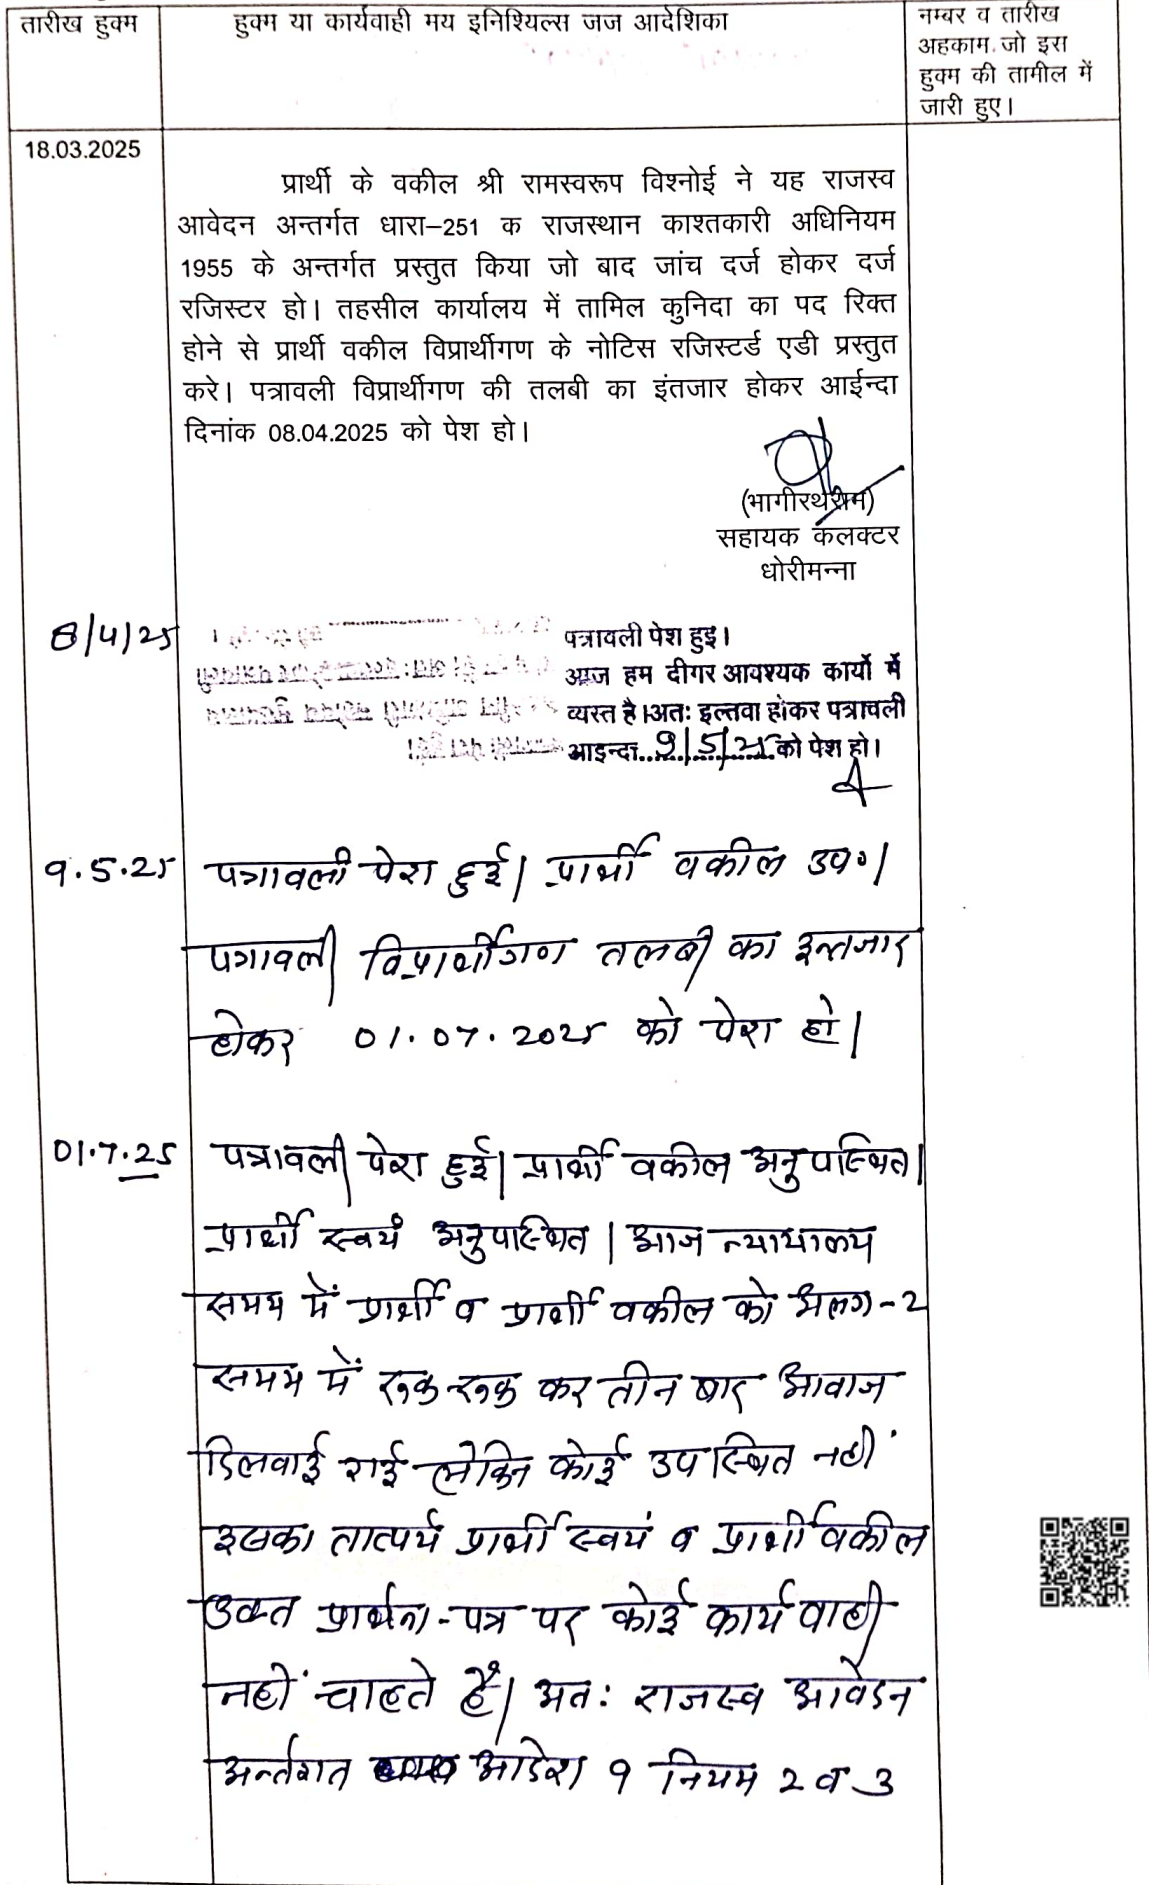 तारीख हुक्म
हुक्म या कार्यवाही मय इनिश्यिल्स जज आदेशिका
नम्बर व तारीख
अहकाम जो इस
हुक्म की तामील में
जारी हुए।
18.03.2025
प्रार्थी के वकील श्री रामस्वरूप विश्नोई ने यह राजस्व
आवेदन अन्तर्गत धारा–251 क राजस्थान काश्तकारी अधिनियम
1955 के अन्तर्गत प्रस्तुत किया जो बाद जांच दर्ज होकर दर्ज
रजिस्टर हो। तहसील कार्यालय में तामिल कुनिदा का पद रिक्त
होने से प्रार्थी वकील विप्रार्थीगण के नोटिस रजिस्टर्ड एडी प्रस्तुत
करे। पत्रावली विप्रार्थीगण की तलबी का इंतजार होकर आईन्दा
दिनांक 08.04.2025 को पेश हो।
(भागीरथराम)
सहायक कलक्टर
धोरीमन्ना
8/4/25
पत्रावली पेश हुइ।
आज हम दीगर आवश्यक कार्यो में
व्यस्त है।अतः इल्तवा होकर पत्रावली
आइन्दा..9/5/25..को पेश हो।
9.5.25
पत्रावली पेश हुई। प्रार्थी वकील उप०।
पत्रावली विप्रार्थीगण तलबी का इन्तजार
होकर 01.07.2025 को पेश हो।
01.7.25
पत्रावली पेश हुई। प्रार्थी वकील अनुपस्थित।
प्रार्थी स्वयं अनुपस्थित। आज न्यायालय
समय में प्रार्थी व प्रार्थी वकील को अलग-2
समय में रूक-रूक कर तीन बार आवाज
दिलवाई गई लेकिन कोई उपस्थित नहीं
इसका तात्पर्य प्रार्थी स्वयं व प्रार्थी वकील
उक्त प्रार्थना-पत्र पर कोई कार्यवाही
नहीं चाहते हैं। अतः राजस्व आवेदन
अर्न्तगत आदेश 9 नियम 2 व 3